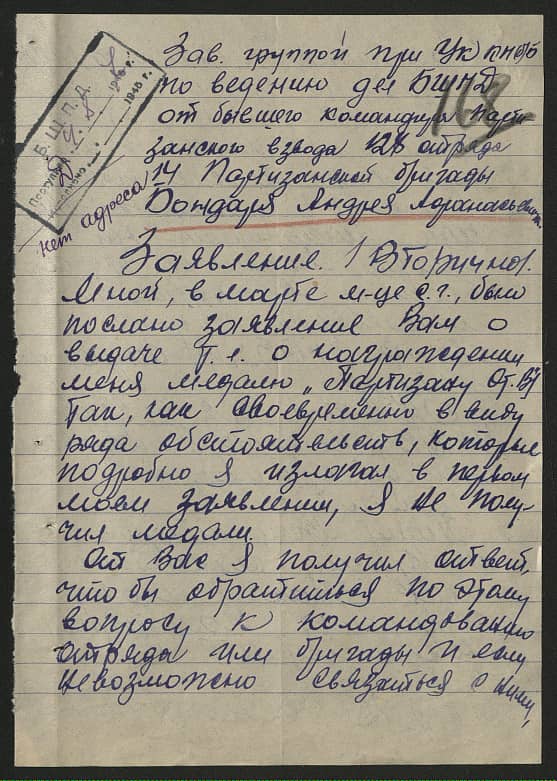 Зав. группой при ЦК
по ведению дел БШПД
от бывшего командира Парти
занского взвода 128 отряда
14 Партизанской бригады
Бондаря Андрея Афанасьевича
Б. Ш. П. Д.
1945 г.
нет адреса
Заявление. / Вторичное.
Мной, в марте м-це с.г., было
послано заявление Вам о
выдаче т.е. о награждении
меня медалю „Партизану От. В"
Так, как своевременно в виду
ряда обстоятельств, которые
подробно я излагал в первом
моем заявлении, я не полу-
чил медали.
От Вас я получил ответ,
что бы обратиться по этому
вопросу к командованию
отряда или бригады и если
невозможно связаться с ними,